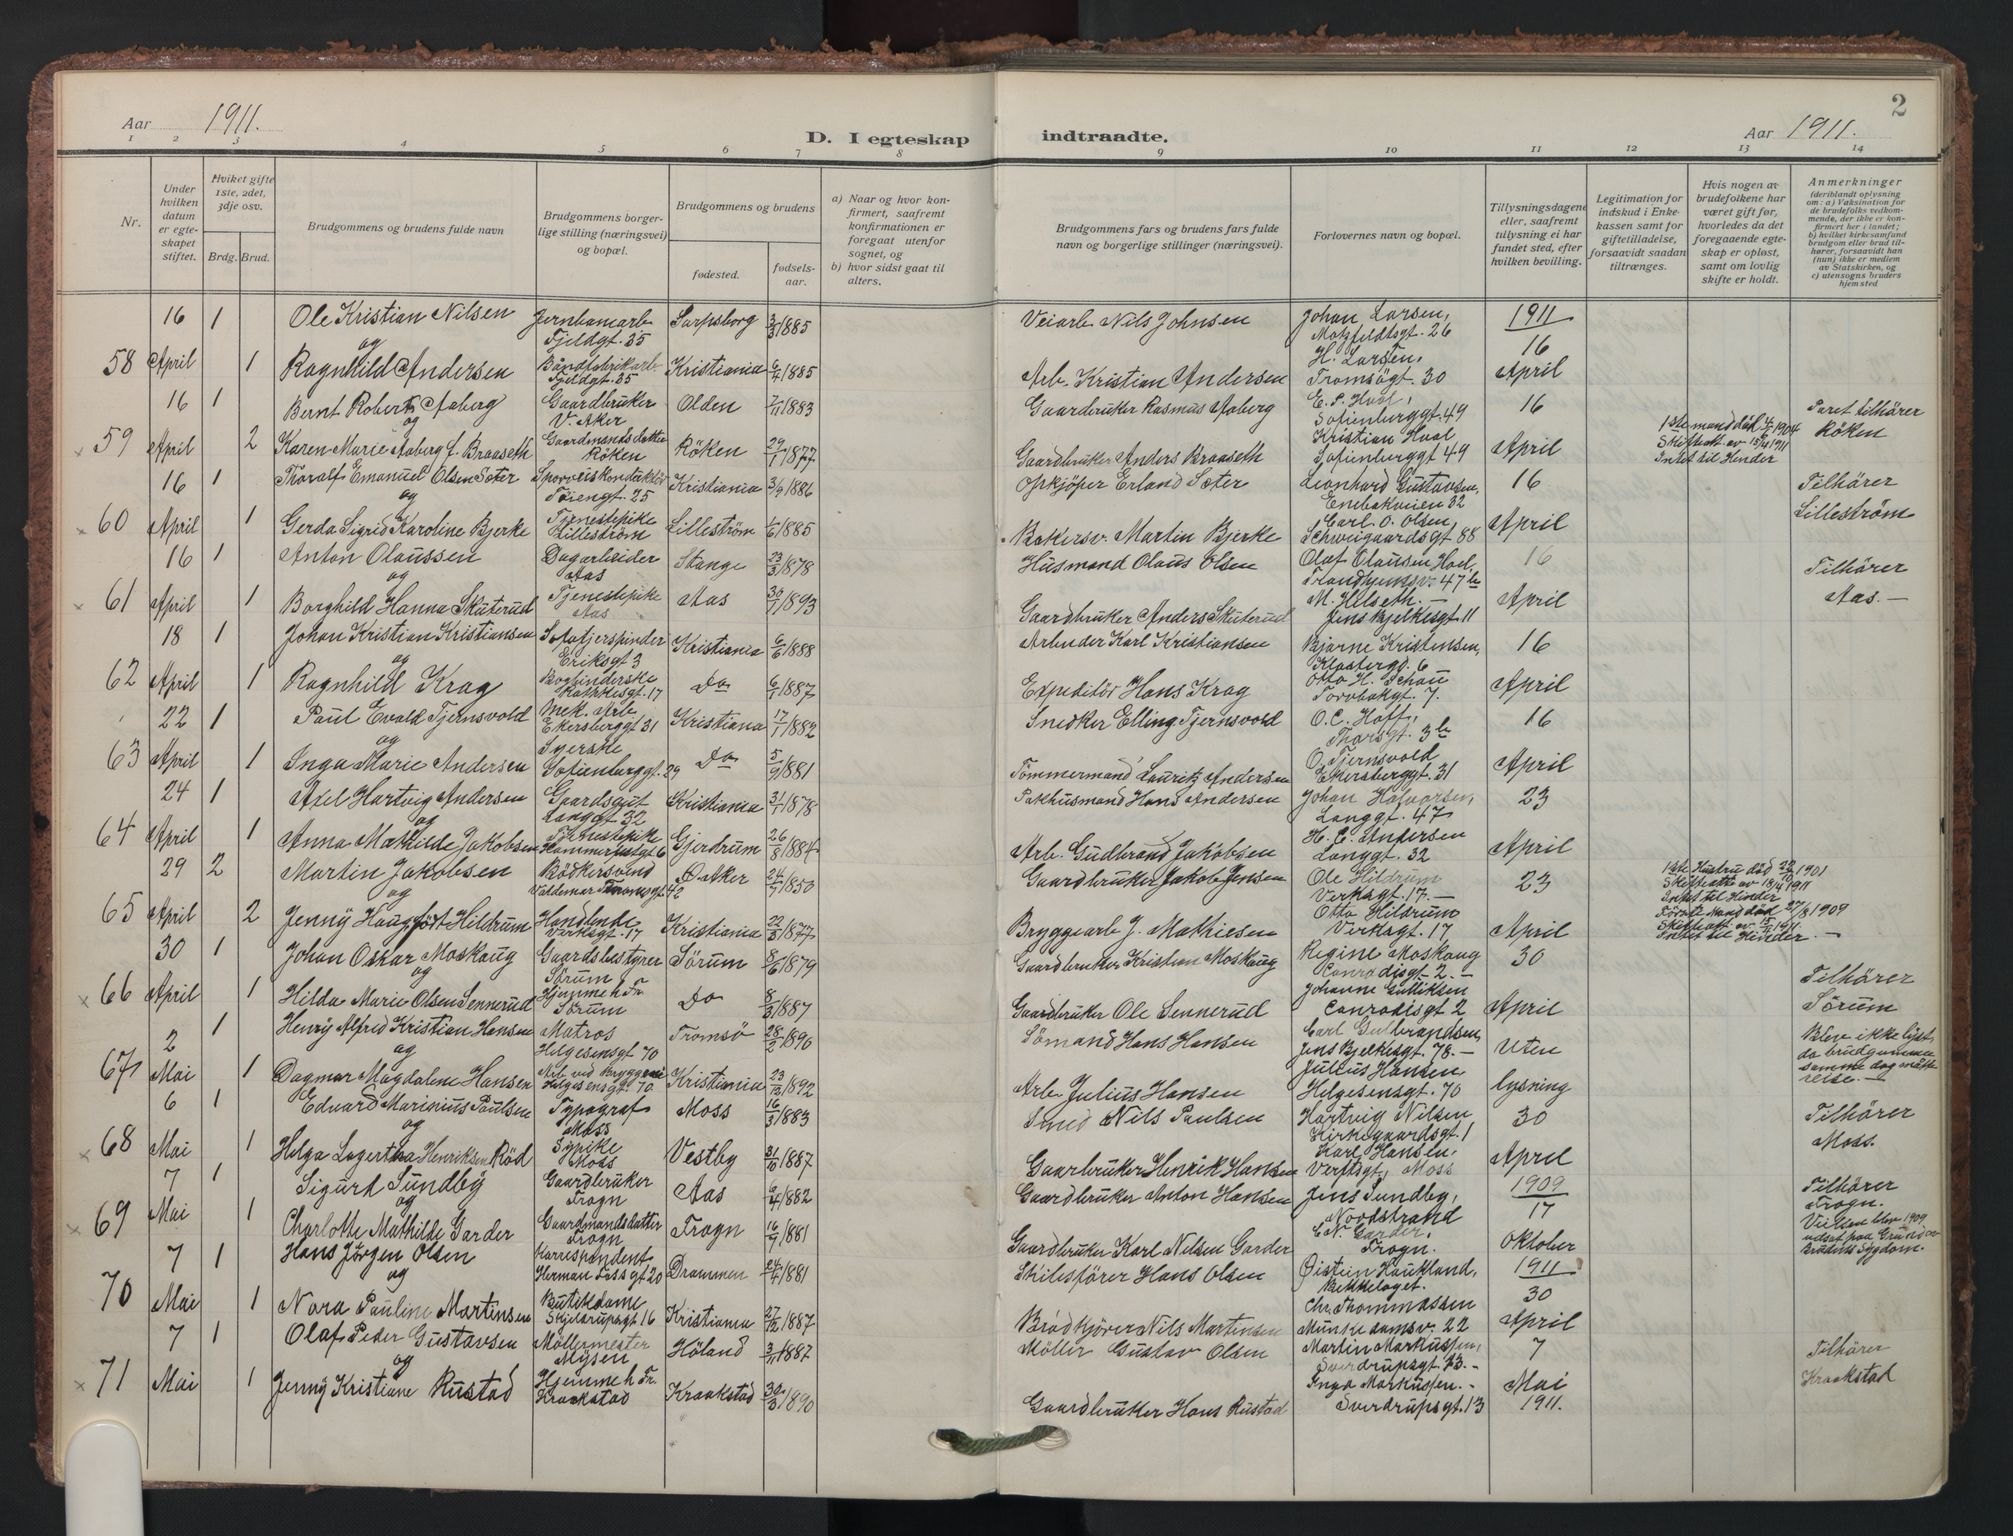 Aar 1911.
D. I egteskap indtraadte.
Aar 1911.
2
1 2 3 4 5 6 7 8 9 10 11 12 13 14
Nr.
Under hvilken datum er egteskapet stiftet.
Hviket gifte 1ste, 2det, 3dje osv.
Brdg. Brud.
Brudgommens og brudens fulde navn
Brudgommens borgerlige stilling (næringsvei) og bopæl.
Brudgommens og brudens
fødested.
fødselsaar.
a) Naar og hvor konfirmert, saafremt konfirmationen er foregaat utenfor sognet, og
b) hvor sidst gaat til alters.
Brudgommens fars og brudens fars fulde navn og borgerlige stillinger (næringsvei).
Forlovernes navn og bopæl.
Tillysningsdagene eller, saafremt tillysning ei har fundet sted, efter hvilken bevilling.
Legitimation for indskud i Enkekassen samt for giftetilladelse, forsaavidt saadan tiltrænges.
Hvis nogen av brudefolkene har været gift før, hvorledes da det foregaaende egteskap er opløst, samt om lovlig skifte er holdt.
Anmerkninger
(deriblandt oplysning om: a) Vaksination for de brudefolks vedkommende, der ikke er konfirmert her i landet; b) hvilket kirkesamfund brudgom eller brud tilhører, forsaavidt han (hun) ikke er medlem av Statskirken, og c) utensogns bruders hjemsted
16 1 Ole Kristian Nilsen Jernbanearb. Fjeldgt. 35 Sarpsborg 3/3 1885 Veiarb. Nils Johnsen Johan Larsen, Motzfeldtsgt. 26 1911
og
58 April 1 Ragnhild Andersen Baandfabrikarb. Fjeldgt. 35 Kristiania 6/4 1885 Arb. Kristian Andersen H. Larsen, Tromsögt. 30 16 April
16 1 Bernt Robert Aaberg Gaardbruker V. Aker Olden 7/11 1883 Gaardbruker Rasmus Aaberg E. P. Hval, Sofienberggt. 49 16
og
59 April 2 Karen Marie Aaberg f. Braaseth Gaardmandsdatter Röken Röken 29/1 1877 Gaardbruker Anders Braaseth Kristian Hval Sofienberggt 49 April 1ste mand död 1904 Skifteatt. av 1911 Intet til Hinder Paret tilhörer Röken
16 1 Thoralf Emanuel Olsen Sæter Sporveiskonduktör Töiengt. 25 Kristiania 3/9 1886 Opkjöper Erland Sæter Leonhard Gustavsen, Enebakveien 32 16 Tilhörer
og
60 April 1 Gerda Sigrid Karoline Bjerke Tjenestepike Lilleström Lilleström 1/6 1885 Bakersv. Martin Bjerke Carl O. Olsen, Schweigaardsgt 88 April Lilleström
16 1 Anton Olaussen Dagarbeider Aas Stange 23/3 1878 Husmand Olaus Olsen Olaf Olausen Hoel, Trondhjemsv. 47 b 16 Tilhörer
og
61 April 1 Borghild Hanna Skuterud Tjenestepike Aas Aas 30/7 1893 Gaardbruker Anders Skuterud M. Hilseth Jens Bjelkesgt 11 April Aas.
18 1 Johan Kristian Kristiansen Eriksgt 3 Kristiania 6/6 1888 Arbeider Karl Kristiansen Bjarne Kristensen, Klostergd. 6 16
og
62 April 1 Ragnhild Krag Bogbinderske Rathkesgt. 17 Do 6/1 1887 Expeditör Hans Krag Otto H. Schau Torvbakgt. 7. April
22 1 Paul Evald Tjernsvold Mek. Arb. Ekersberggt 31 Kristiania 17/1 1882 Snedker Elling Tjernsvold O. C. Hoff, Thorsgt. 3 b 16
og
63 April 1 Inga Marie Andersen Syerske Sofienberggt. 29 Do 5/9 1881 Tömmermand Lauritz Andersen O. Tjernsvold Ekersberggt. 31 April
24 1 Axel Hartvig Andersen Gaardsgut Langgt 32 Kristiania 31/1 1878 Pakhusmand Hans Andersen Johan Halvorsen, Langgt. 47 23
og
64 April 1 Anna Mathilde Jakobsen Tjenestepike Hammerfestgt 6 Gjerdrum 26/8 1884 Arb. Gudbrand Jakobsen H. C. Andersen Langgt. 32 April
29 2 Martin Jakobsen Bödkersvend Valdemar Thranesgt 42 Ö. Aker 24/9 1850 Gaardbruker Jakob Jensen Ole Hildrum Verksgt. 17. 23 1ste Hustru död 1901 Skifteatt. av 18/4 1911 Intet til Hinder
og
65 April 2 Jenny Haug föt Hildrum Handlende Verksgt. 17 Kristiania 22/3 1877 Bryggearb. J. Mathiesen Otto Hildrum Verksgt. 17 April Förste Mand död 27/8 1909 Skifteatt. av 1911. Intet til Hinder
30 1 Johan Oskar Moskaug Gaardsbestyrer Sörum Sörum 8/6 1879 Gaardbruker Kristian Moskaug Regine Moskaug Conradisgt 2. 30 Tilhörer
og
66 April 1 Hilda Marie Olsen Sennerud Hjemme h. Fr. Sörum Do 8/3 1887 Gaardbruker Ole Sennerud Johanne Conradisgt 2 April Sörum
2 1 Henry Alfred Kristian Hansen Matros Helgesensgt 70 Tromsö 28/2 1890 Sömand Hans Hansen Carl Gulbrandsen, Jens Bjelkesgt. 78. Uten Blev ikke lyst da brudgommen samme dag maatte reise.
og
67 Mai 1 Dagmar Magdalene Hansen Arb. ved Bryggeri Helgesensgt. 70 Kristiania 23/12 1892 Arb. Julius Hansen Julius Hansen Helgesensgt. 70 lysning
6 1 Edvard Marinius Paulsen Typograf Moss Moss 16/3 1883 Smed Nils Paulsen Hartvig Nilsen Kirkegaardsgt. 1 30 Tilhörer
og
68 Mai 1 Helga Lagertha Henriksen Röd Sypike Moss Vestby 31/10 1887 Gaarbruker Henrik Hansen Karl Hansen, Verftsgt, Moss April Moss.
7 1 Sigurd Sundby Gaardbruker Frogn Aas 6/4 1882 Gaardbruker Anton Hansen Jens Sundby, Nordstrand 1909 17 Tilhörer Frogn.
og
69 Mai 1 Charlotte Mathilde Garder Gaardmandsdatter Frogn Frogn 16/9 1881 Gaardbruker Karl Nilsen Garder C. N. Garder, Frogn. Oktober Vielsen blev 1909 udsat paa Grund av Brudens Sygdom.
7 1 Hans Jörgen Olsen Korrespondent Herman Fossgt 20 Drammen 24/4 1881 Skibsförer Hans Olsen Öistein Haukland, Bekkelaget. 1911
og
70 Mai 1 Nora Pauline Martinsen Butikdame Skjeldrupsgt 16 Kristiania 27/12 1887 Brödkjörer Nils Martinsen Chr. Thommassen Munkedamsv. 22 30 April
7 1 Olaf Peder Gustavsen Möllermester Mysen Höland 3/11 1887 Möller Gustav Olsen Martin Markussen, Sverdrupsgt 13. 7 Tilhörer
og
71 Mai 1 Jenny Kristiane Rustad Hjemme h. Fr. Kraakstad Kraakstad 30/3 1890 Gaardbruker Hans Rustad Inga Markussen. Sverdrupsgt. 13 Mai 1911. Kraakstad